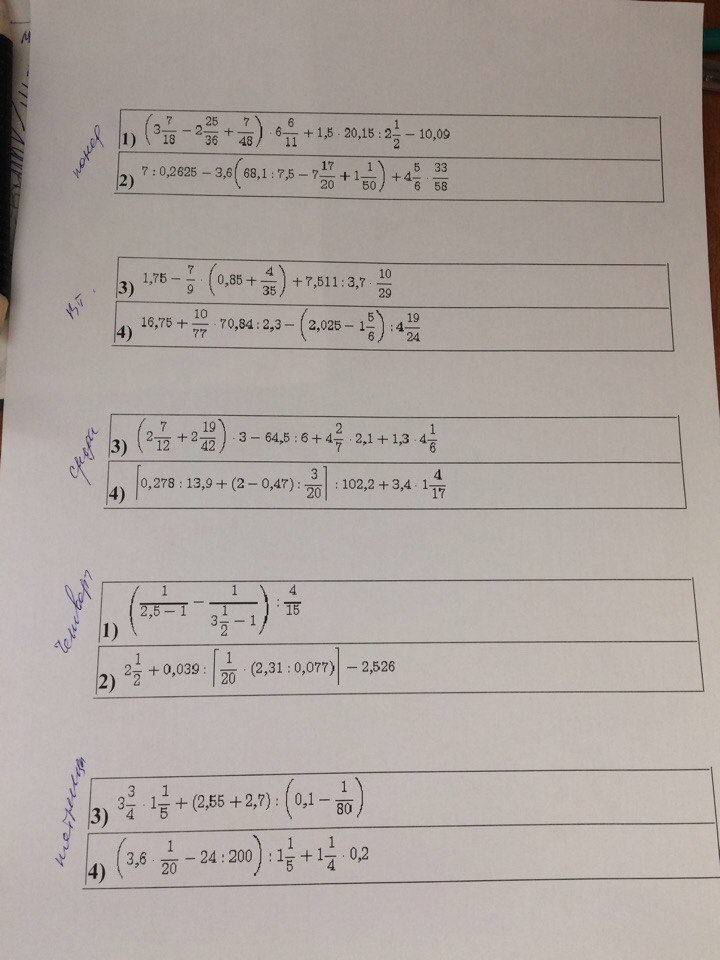 понед
1) (3 7/18 − 2 25/36 + 7/48) · 6 6/11 + 1,5 · 20,15 : 2 1/2 − 10,09
2) 7 : 0,2625 − 3,6(68,1 : 7,5 − 7 17/20 + 1 1/50) + 4 5/6 · 33/58
вт.
3) 1,75 − 7/9 · (0,85 + 4/35) + 7,511 : 3,7 · 10/29
4) 16,75 + 10/77 · 70,84 : 2,3 − (2,025 − 1 5/6) : 4 19/24
среда
3) (2 7/12 + 2 19/42) · 3 − 64,5 : 6 + 4 2/7 · 2,1 + 1,3 · 4 1/6
4) ⌈0,278 : 13,9 + (2 − 0,47) : 3/20⌉ : 102,2 + 3,4 · 1 4/17
Четверг
1) (1/(2,5 − 1) − 1/(3 1/2 − 1)) : 4/15
2) 2 1/2 + 0,039 : ⌈1/20 · (2,31 : 0,077)⌉ − 2,526
3) 3 3/4 · 1 1/5 + (2,55 + 2,7) : (0,1 − 1/80)
4) (3,6 · 1/20 − 24 : 200) : 1 1/5 + 1 1/4 · 0,2